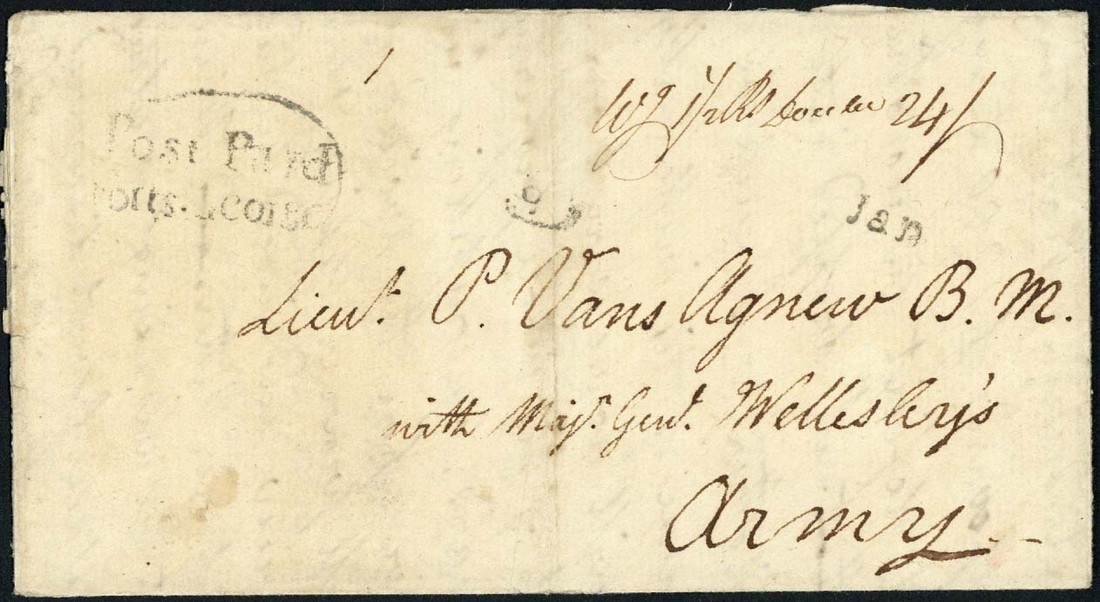 Post Paid
Fort St. George
Wg 1/2 Rs 24/
9
Jan
Lieut. P. Vans Agnew B. M.
with Majr. Genl. Wellesley's
Army